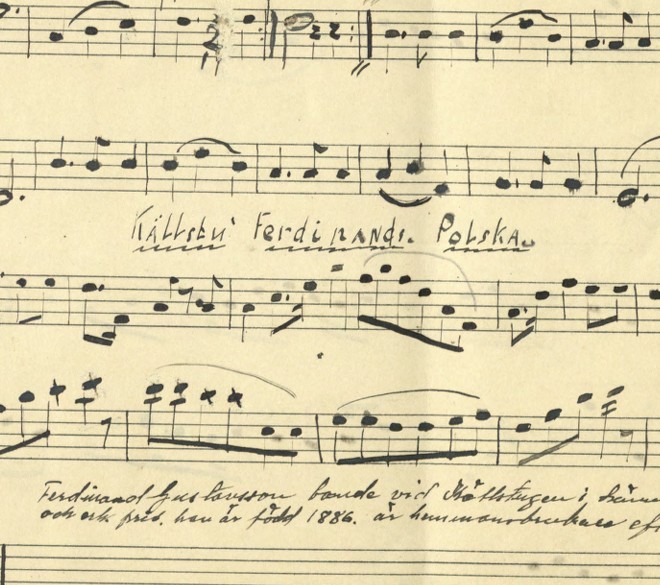 Källsbu' Ferdinands. Polska.
Ferdinand Gustavsson bodde vid Källstugen i
och är född 1886. är hemmansbrukare